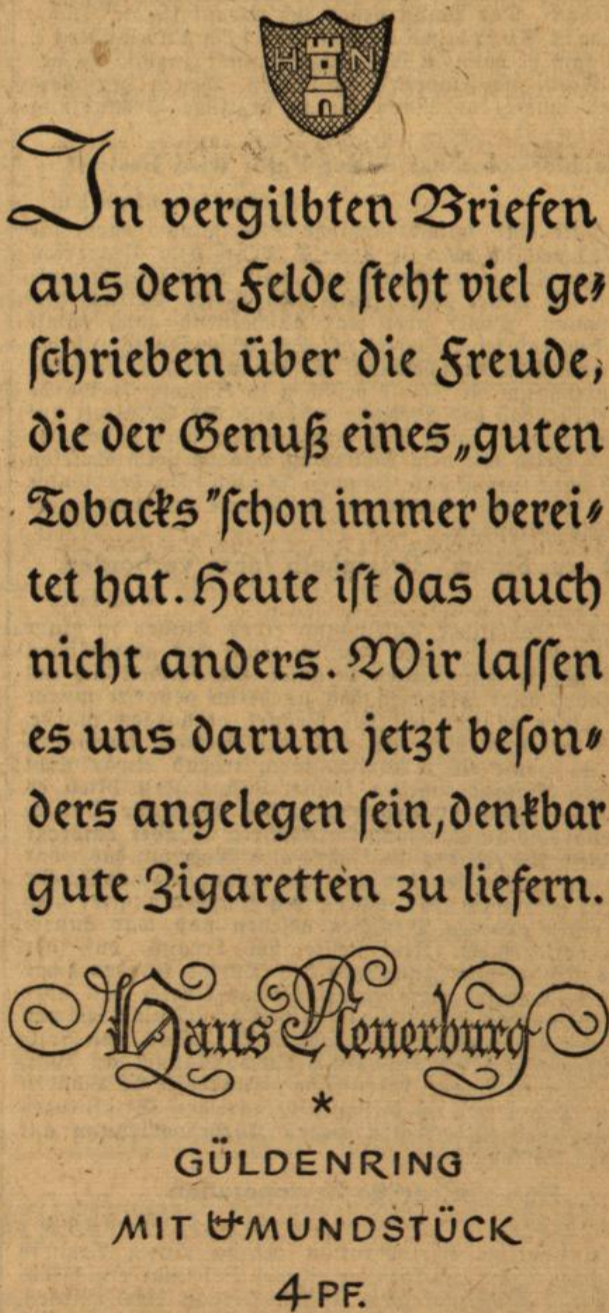 H N
In vergilbten Briefen
aus dem Felde steht viel ge-
schrieben über die Freude,
die der Genuß eines „guten
Tobacks" schon immer berei-
tet hat. Heute ist das auch
nicht anders. Wir lassen
es uns darum jetzt beson-
ders angelegen sein, denkbar
gute Zigaretten zu liefern.
Haus Neuerburg
*
GÜLDENRING
MIT MUNDSTÜCK
4 PF.